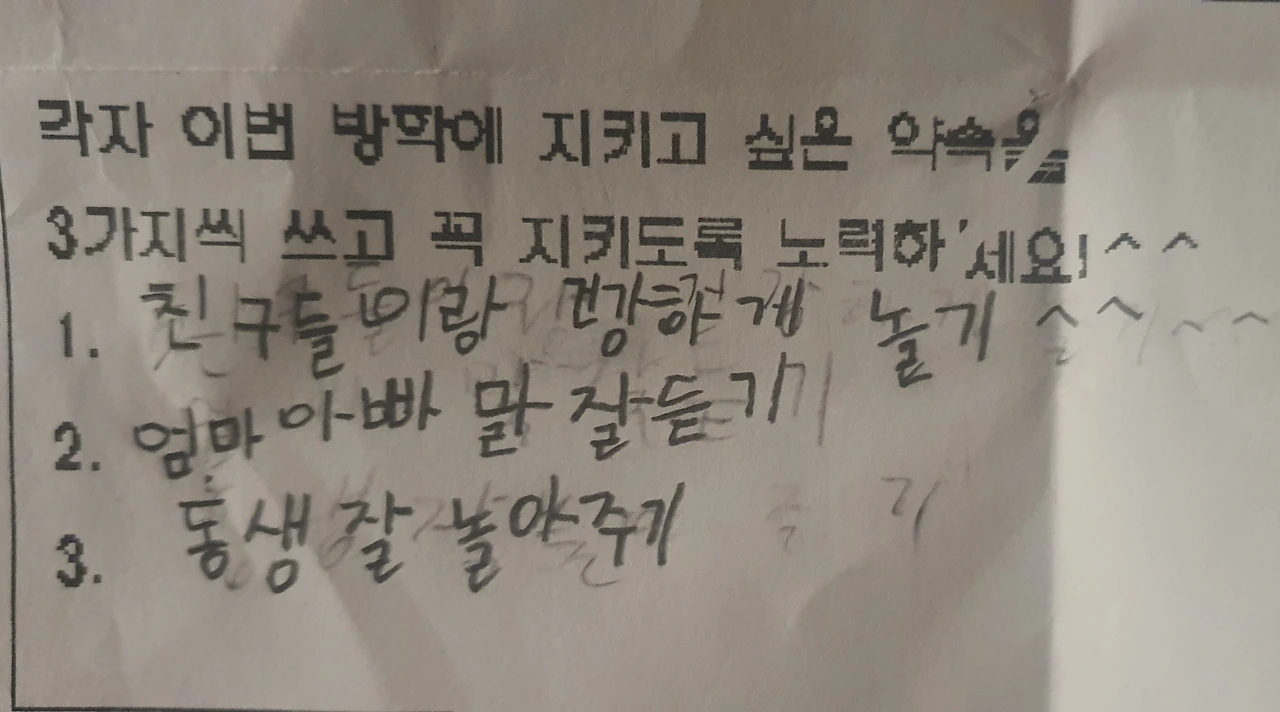 각자 이번 방학에 지키고 싶은 약속을
3가지씩 쓰고 꼭 지키도록 노력하세요!^^
1. 친구들이랑 건강하게 놀기 ^^
2. 엄마 아빠 말 잘듣기
3. 동생 잘 놀아주기